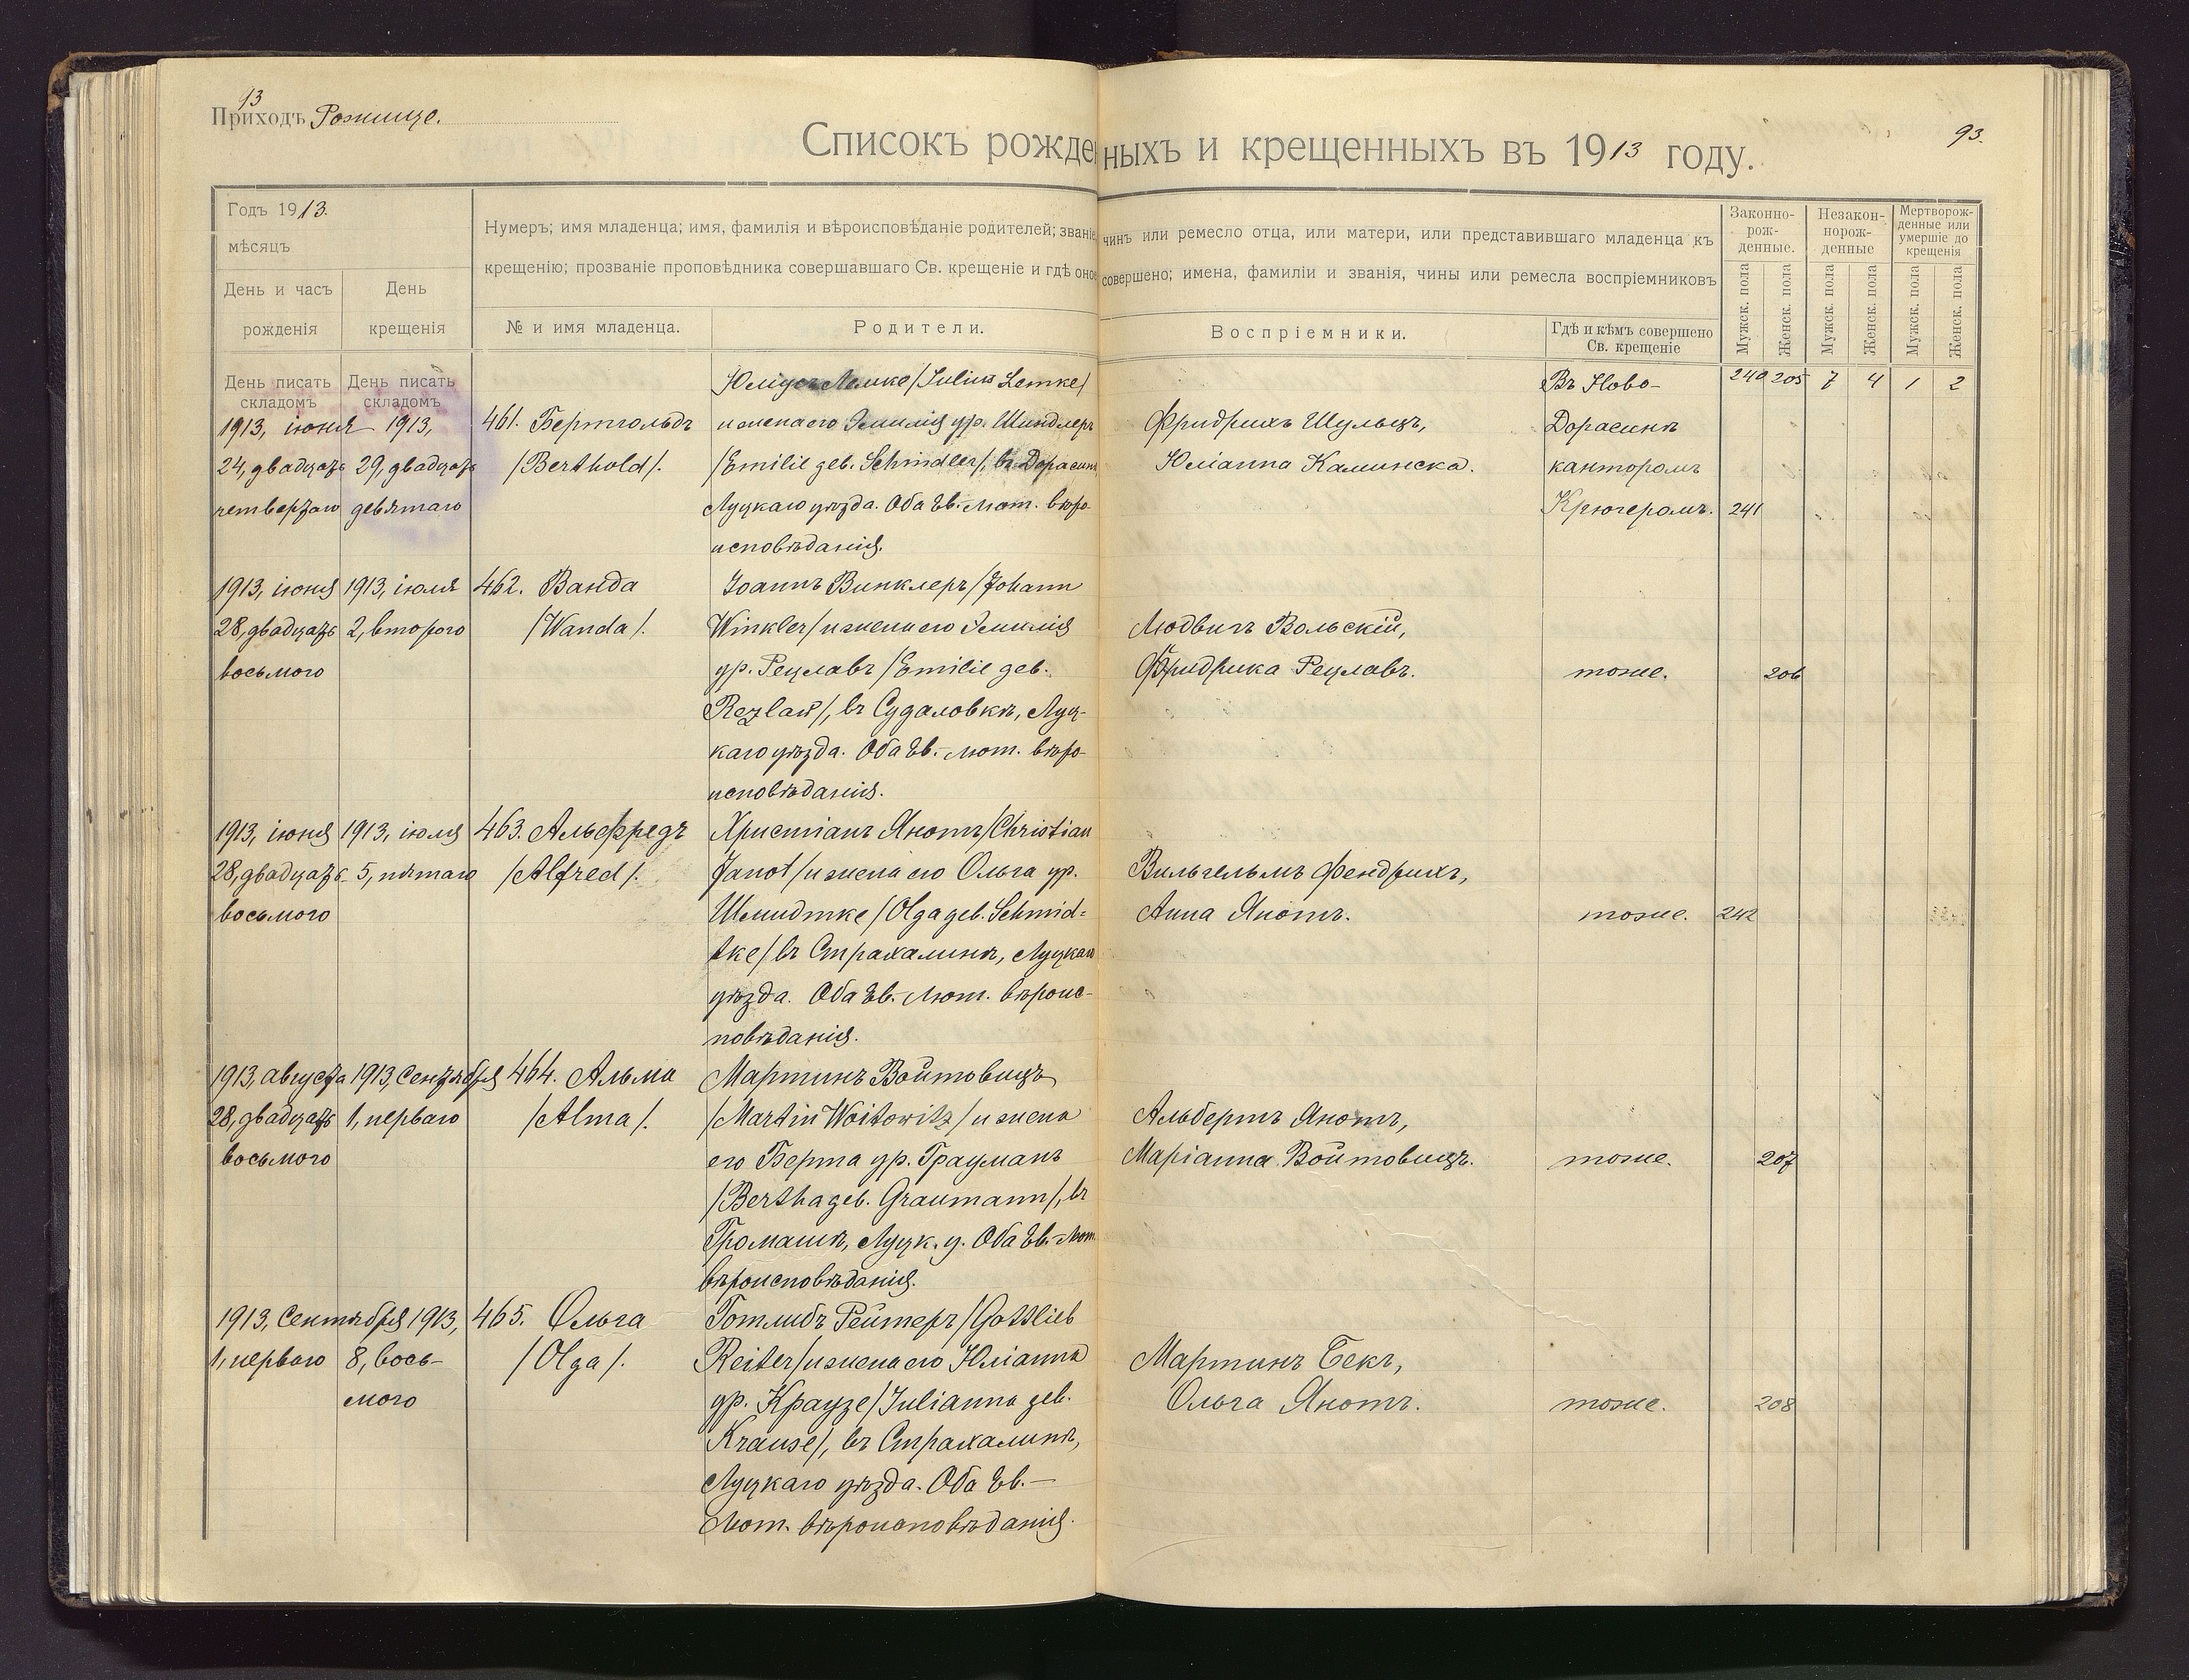 93
Приходъ Рожище.
93.
Списокъ рожденныхъ и крещенныхъ въ 1913 году.
Годъ 1913.
мѣсяцъ
День и часъ рожденія
День крещенія
Нумеръ; имя младенца; имя, фамилія и вѣроисповѣданіе родителей; званіе, чинъ или ремесло отца, или матери, или представившаго младенца къ
крещенію; прозваніе проповѣдника совершавшаго Св. крещеніе и гдѣ оное совершено; имена, фамиліи и званія, чины или ремесла воспріемниковъ
№ и имя младенца.
Родители.
Воспріемники.
Гдѣ и кѣмъ совершено
Св. крещеніе
Законно-
рож-
денные.
Незакон-
норож-
денные
Мертворож-
денные или
умершіе до
крещенія
Мужск. пола
Женск. пола
Мужск. пола
Женск. пола
Мужск. пола
Женск. пола
День писать
складомъ
День писать
складомъ
240 205 7 4 1 2
1913, іюня
24, двадцать
четвертаго
1913,
29, двадцать
девятаго
461. Бертольдъ
/Berthold/.
Юліусъ Лемке /Julius Lemke/
и жена его Эмилія ур. Шиндлеръ
/Emilie geb. Schindler/, въ Дорасинѣ,
Луцкаго уѣзда. Оба Ев.-Лют. вѣро-
исповѣданія.
Фридрихъ Шульцъ,
Юліанна Каминска.
Въ Ново-
Дорасинѣ
канторомъ
Крюгеромъ.
241
1913, іюня
28, двадцать
восьмого
1913, іюля
2, второго
462. Ванда
/Wanda/.
Іоаннъ Винклеръ /Johann
Winkler/ и жена его Эмилія
ур. Рецлавъ /Emilie geb.
Rezlaw/, въ Судаловкѣ, Луц-
каго уѣзда. Оба Ев.-Лют. вѣро-
исповѣданія.
Людвигъ Вольскій,
Фридрика Рецлавъ.
тоже.
206
1913, іюня
28, двадцать
восьмого
1913, іюля
5, пятаго
463. Альфредъ
/Alfred/.
Христіанъ Янотъ /Christian
Janot/ и жена его Ольга ур.
Шмидтке /Olga geb. Schmid=
tke/ въ Страхалинѣ, Луцкаго
уѣзда. Оба Ев.-Лют. вѣроис-
повѣданія.
Вильгельмъ Фендрихъ,
Анна Янотъ.
тоже.
242
1913, августа
28, двадцать
восьмого
1913, Сентября
1, перваго
464. Альма
/Alma/.
Мартинъ Войтовицъ
/Martin Woitowitz/ и жена
его Берта ур. Грауманъ
/Bertha geb. Graumann/, въ
Громашѣ, Луцк. у. Оба Ев.-Лют.
вѣроисповѣданія.
Альбертъ Янотъ,
Маріанна Войтовицъ.
тоже.
207
1913, Сентября
1, перваго
1913,
8, вось-
мого
465. Ольга
/Olga/.
Готлибъ Рейтеръ /Gottlieb
Reiter/ и жена его Юліанна
ур. Краузе /Julianna geb.
Krause/, въ Страхалинѣ,
Луцкаго уѣзда. Оба Ев.-
Лют. вѣроисповѣданія.
Мартинъ Бекъ,
Ольга Янотъ.
тоже.
208